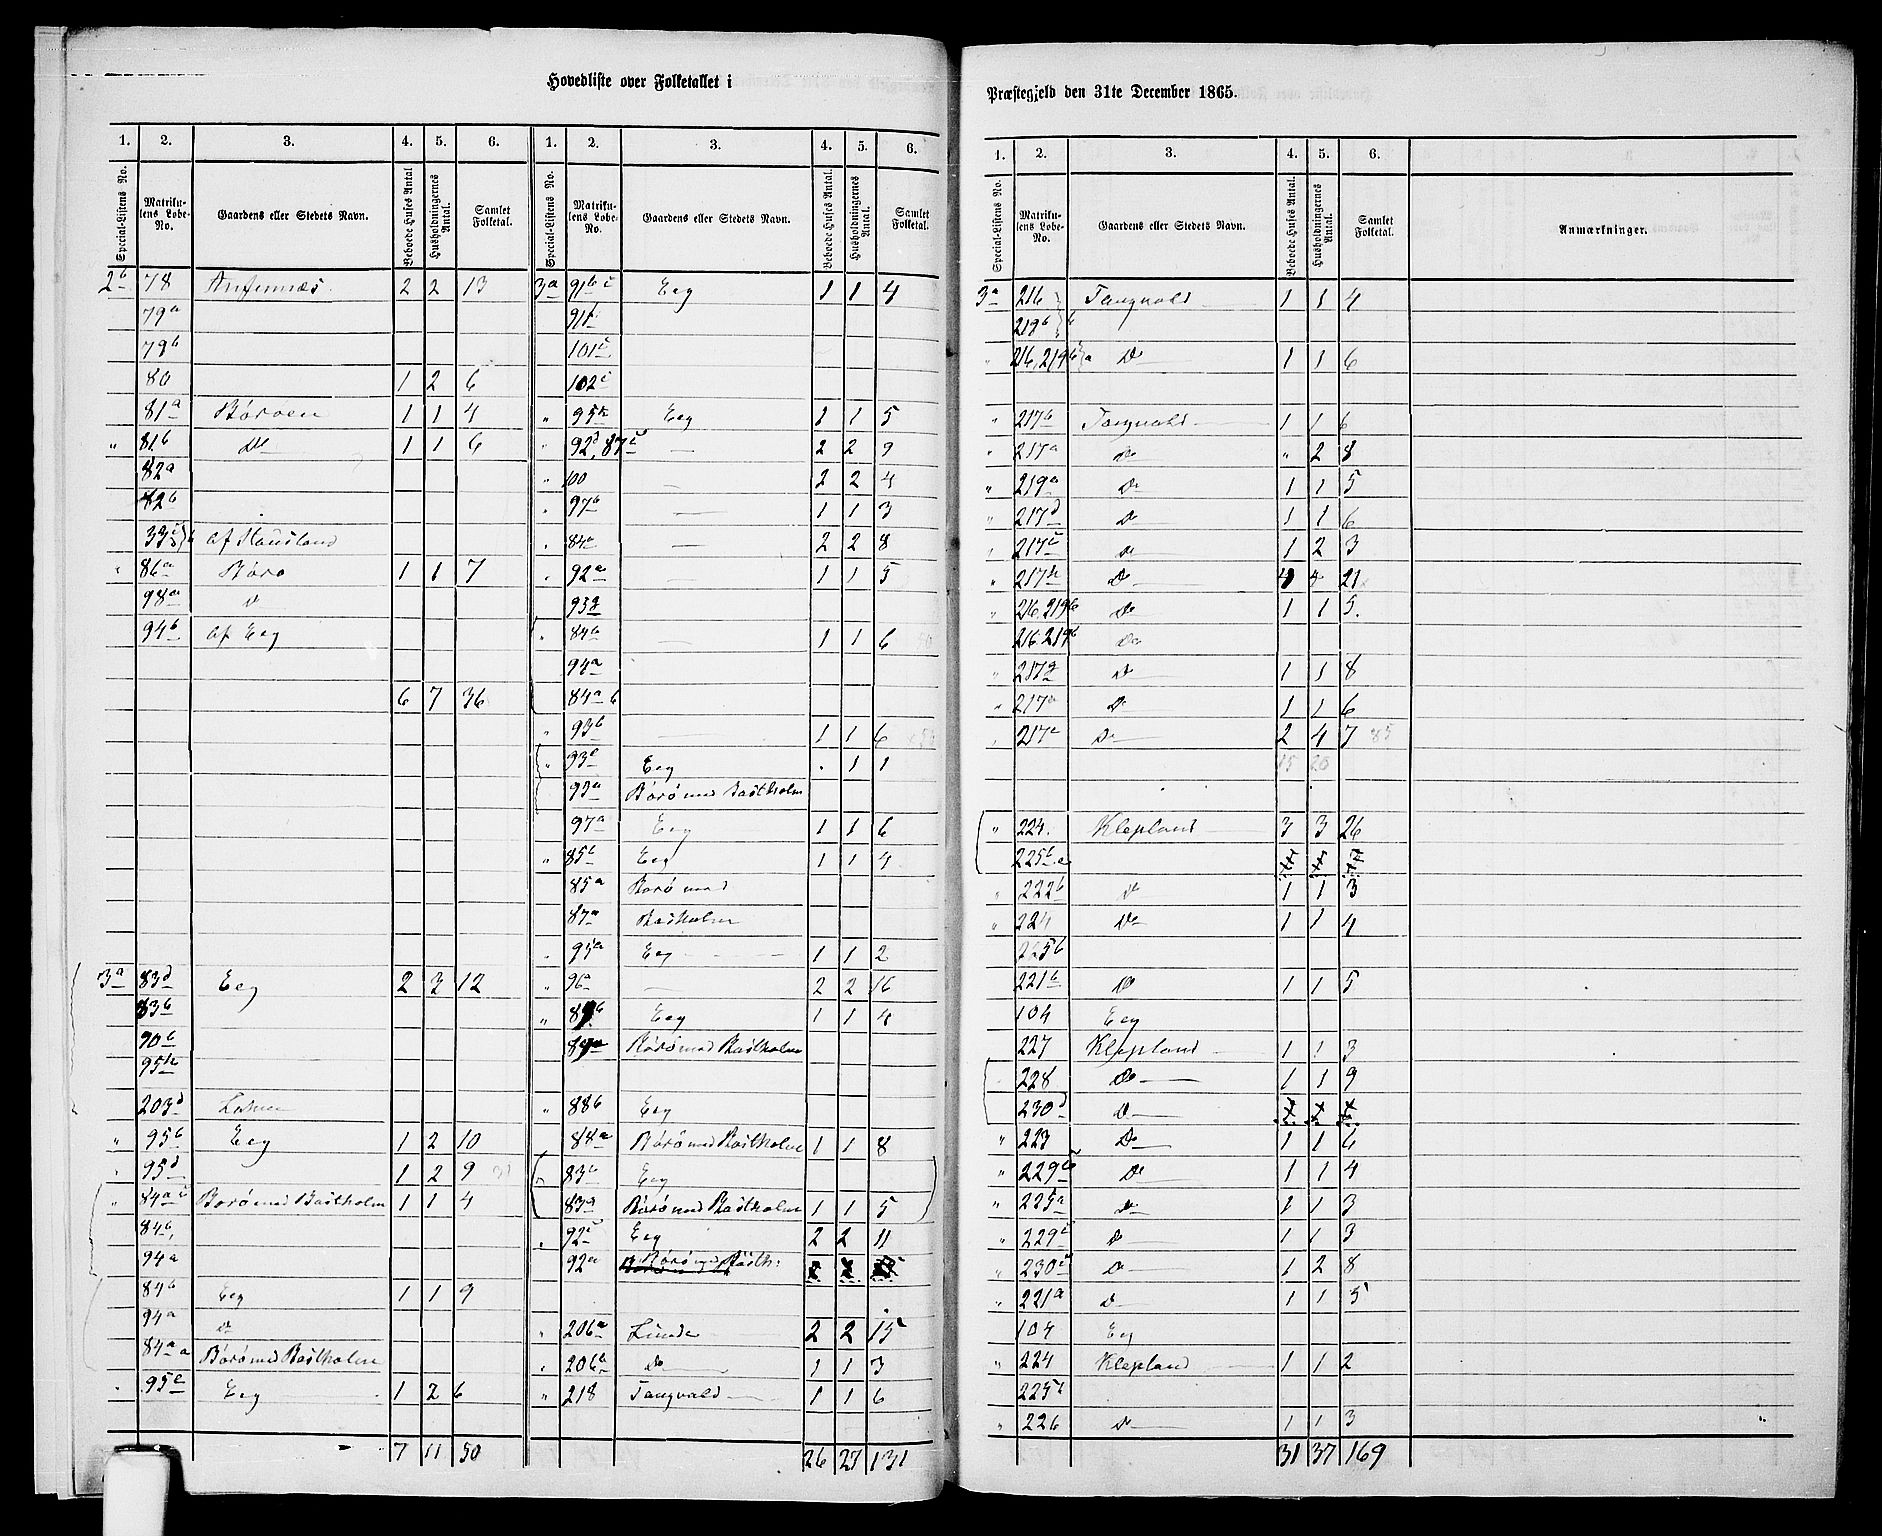 Hovedliste over Folketallet i
1. 2. 3. 4. 5. 6.
Special-Listens No. Matrikulens Løbe-No. Gaardens eller Stedets Navn. Beboede Huses Antal. Husholdningernes Antal. Samlet Folketal.
2b 78 2 2 13
79a
79b
80 1 2 6
81a Børøen 1 1 4
" 81b Do 1 1 6
82a
82b
af Hausland
" 86a Børø 1 1 7
98a D
94b af Eeg
6 7 36
3a 83d Eeg 2 3 12
83b
90b
95h
203d
" 95b Eeg 1 2 10
" 95d 1 2 9
" 84a c Børø med Bastholm 1 1 4
84b
94a
84b Eeg 1 1 9
94a D
84a a Børø med Bastholm
" 95c Eeg 1 2 6
7 11 50
1. 2. 3. 4. 5. 6.
Special-Listens No. Matrikulens Løbe-No. Gaardens eller Stedets Navn. Beboede Huses Antal. Husholdningernes Antal. Samlet Folketal.
3a 91b c Eeg 1 1 4
91f
101c
102c
" 95k Eeg 1 1 5
" 92d, 87c — 2 2 9
" 100 — 2 2 4
" 97b — 1 1 3
" — 2 2 8
" 92a — 1 1 5
93g
" 84b — 1 1 6
94a
84a b
" 93b — 1 1 6
" Eeg . 1 1
93a Børø med Bastholm
97a Eeg 1 1 6
" 85b Eeg 1 1 4
85a Børø med
87a Bastholm
" 95a Eeg 1 1 2
" 96a — 2 2 16
" Eeg 1 1 4
Børø med Bastholm
" 88b Eeg
88a Børø med Bastholm 1 1 8
" 83c Eeg
83a Børø med Bastholm 1 1 5
" 92c Eeg 2 2 11
92a Børø med Basth:
" 206a Lunde 2 2 15
" 206a Do 1 1 3
" 218 Tangvald 1 1 6
26 27 131
Præstegjeld den 31te December 1865.
1. 2. 3. 4. 5. 6.
Special-Listens No. Matrikulens Løbe-No. Gaardens eller Stedets Navn. Beboede Huses Antal. Husholdningernes Antal. Samlet Folketal. Anmærkninger.
3a 216 Tangvald 1 1 4
219b } b
" 216, 219b } a Do 1 1 6
" 217b Tangvald 1 1 6
" 217a Do " 2 8
" 219a Do 1 1 5
" 217d Do 1 1 6
" 217c Do 1 2 3
" 217h Do 4 4 21
" 216. 219b Do 1 1 5.
216. 219b Do
" 217g D 1 1 8
" 217a Do 1 1 6
" Do 2 4 7 85
15 20
" 224. Klepland 3 3 26
225b
" 222b D 1 1 3
" 224 Do 1 1 4
225b
221b Do 1 1 5
104 Eeg
227 Klepland 1 1 3
" 228 Do 1 1 9
230d D
" 223 Do 1 1 6
" D 1 1 4
" 225a Do 1 1 3
" 229c D 1 1 3
" 230c D 1 2 8
" 221a D 1 1 5
104 Eeg
" 224 Klepland 1 1 2
225b
" 226 D 1 1 3
31 37 169